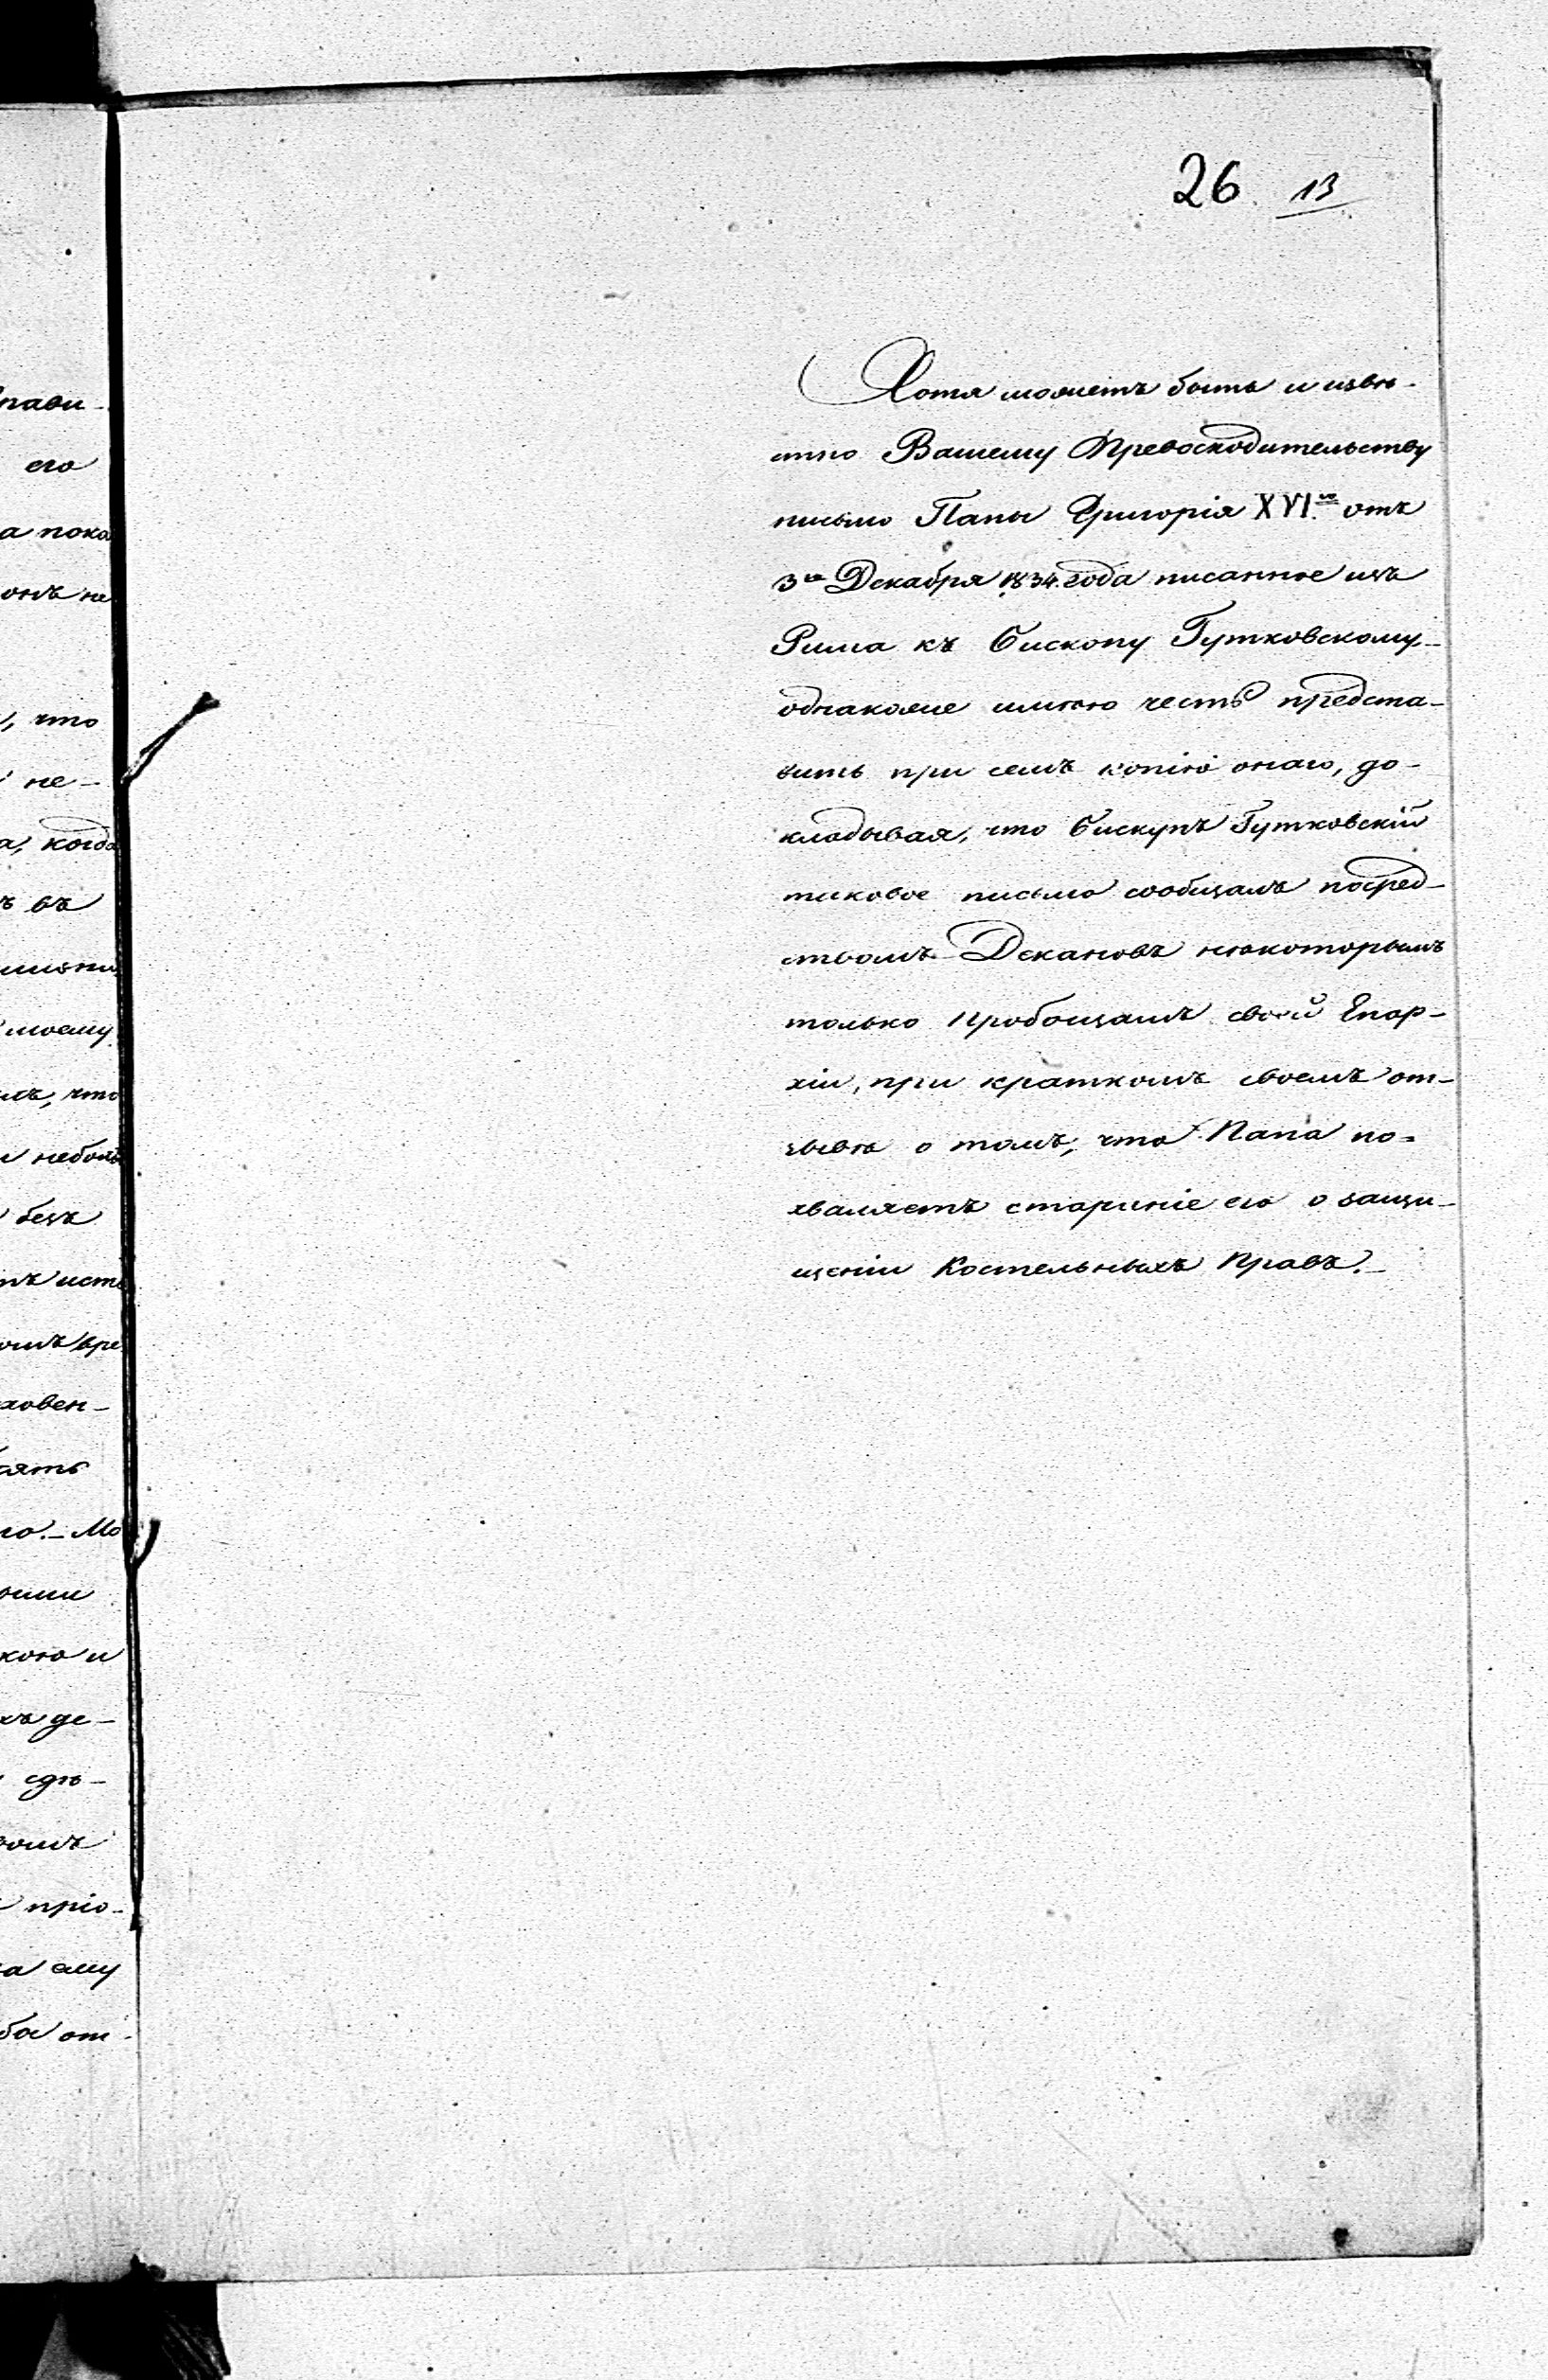 26 13
Хотя можетъ быть и извѣ-
стно Вашему Превосходительству
письмо Папы Григорія XVI го отъ
3го Декабря 1834. года писанное изъ
Рима къ Бископу Гутковскому,-
однакоже имѣю честь предста-
вить при семъ копію онаго, до-
кладывая, что Бискупъ Гутковскій
таковое письмо сообщалъ посред-
ствомъ Декановъ нѣкоторымъ
только Пробощамъ своей Епар-
хіи, при краткомъ своемъ от-
зывѣ о томъ, что Папа по=
хваляетъ стараніе его о защи-
щеніи Костельныхъ Правъ.-
прави-
его
а пока
онъ не
, что
не-
а, когда
ъ въ
моему
что
безъ
ховен-
Мо
кою и
хъ де-
сдѣ-
прiо-
ему
от-